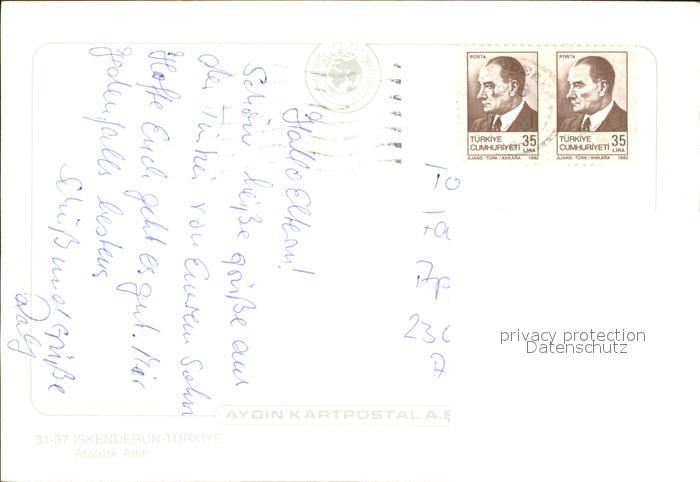 Hallo Eltern!
Schöne heiße Grüße aus
der Türkei von Eurem Sohn
Hoffe Euch geht es gut. Mir
jedenfalls bestens
Schüß und Grüße
POSTA
TÜRKİYE
CUMHURİYETİ 35
LİRA
AJANS-TÜRK / ANKARA 1982
POSTA
TÜRKİYE
CUMHURİYETİ 35
LİRA
AJANS-TÜRK / ANKARA 1982
privacy protection
Datenschutz
AYDIN KARTPOSTAL A.Ş
31-37 İSKENDERUN-TÜRKİYE
Atatürk Anıtı